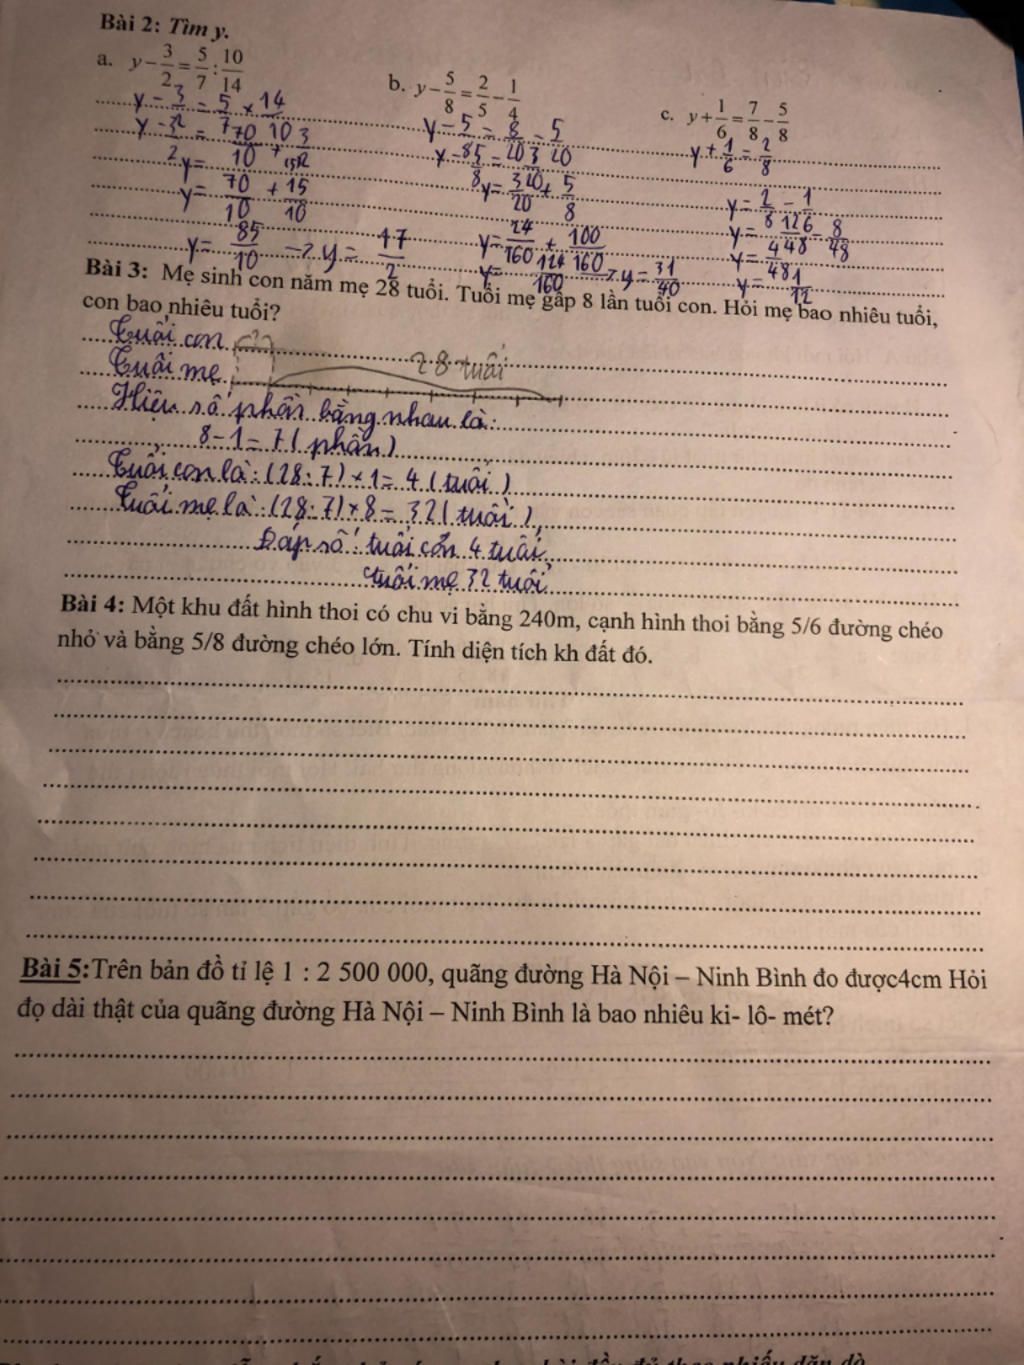 Bài 2: Tìm y.
a. y - 3/2 = 5/7 : 10/14
b. y - 5/8 = 2/5 - 1/4
c. y + 1/6 = 7/8 - 5/8
y - 3/2 = 5/7 × 14/10
y - 3/2 = 70/70
y = 10 + 3/2
y = 70/10 + 15/10
y = 85/10 → y = 17/2
y - 5/8 = 8/20 - 5/20
y - 5/8 = 3/20
y = 3/20 + 5/8
y = 24/160 + 100/160
y = 124/160 → y = 31/40
y + 1/6 = 2/8
y = 2/8 - 1/6
y = 12/48 - 8/48
y = 4/48
y = 1/12
Bài 3: Mẹ sinh con năm mẹ 28 tuổi. Tuổi mẹ gấp 8 lần tuổi con. Hỏi mẹ bao nhiêu tuổi,
con bao nhiêu tuổi?
Tuổi con
28 tuổi
Tuổi mẹ
Hiệu số phần bằng nhau là:
8 - 1 = 7 (phần)
Tuổi con là: (28 : 7) × 1 = 4 (tuổi)
Tuổi mẹ là: (28 : 7) × 8 = 32 (tuổi)
Đáp số: tuổi con 4 tuổi
tuổi mẹ 32 tuổi
Bài 4: Một khu đất hình thoi có chu vi bằng 240m, cạnh hình thoi bằng 5/6 đường chéo
nhỏ và bằng 5/8 đường chéo lớn. Tính diện tích kh đất đó.
Bài 5:Trên bản đồ tỉ lệ 1 : 2 500 000, quãng đường Hà Nội – Ninh Bình đo được4cm Hỏi
đọ dài thật của quãng đường Hà Nội – Ninh Bình là bao nhiêu ki- lô- mét?